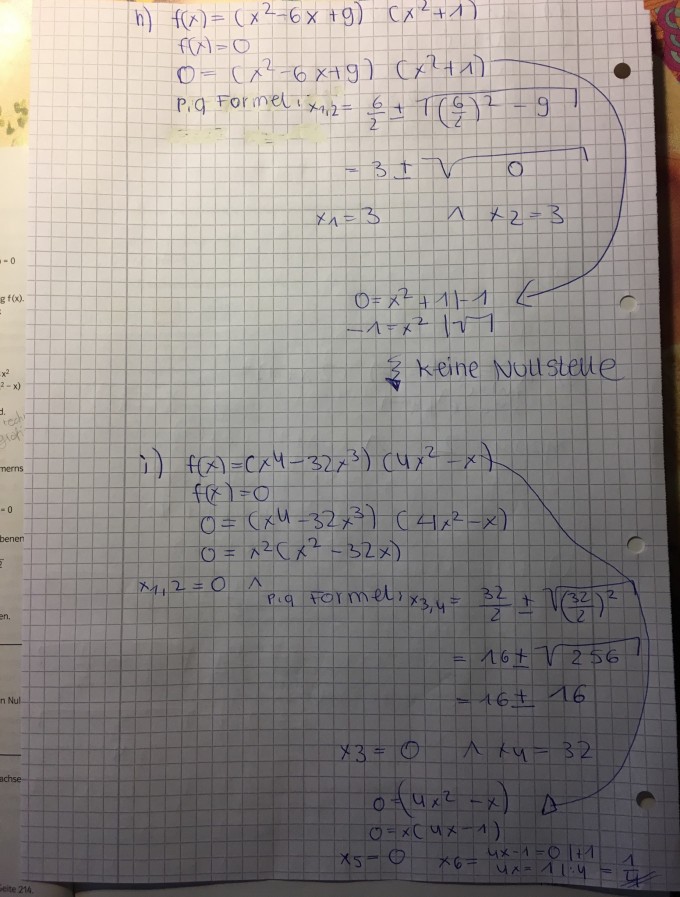 h) f(x) = (x²-6x+9) (x²+1)
f(x)=0
0 = (x²-6x+9) (x²+1)
p,q Formel: x1,2 = 6/2 ± √(6/2)² - 9
= 3 ± √0
x1 = 3 ∧ x2 = 3
0 = x²+1 |-1
-1 = x² |√
keine Nullstelle
i) f(x) = (x4-32x³) (4x²-x)
f(x)=0
0 = (x4-32x³) (4x²-x)
0 = x²(x²-32x)
x1,2 = 0 ∧
p,q Formel: x3,4 = 32/2 ± √(32/2)²
= 16 ± √256
= 16 ± 16
x3 = 0 ∧ x4 = 32
0 = (4x²-x)
0 = x(4x-1)
x5 = 0 x6 = 4x-1=0 |+1
4x = 1 |:4 = 1/4
= 0
g f(x).
x²
² - x)
d.
merns
= 0
benen
en.
n Nul
achse
Seite 214.